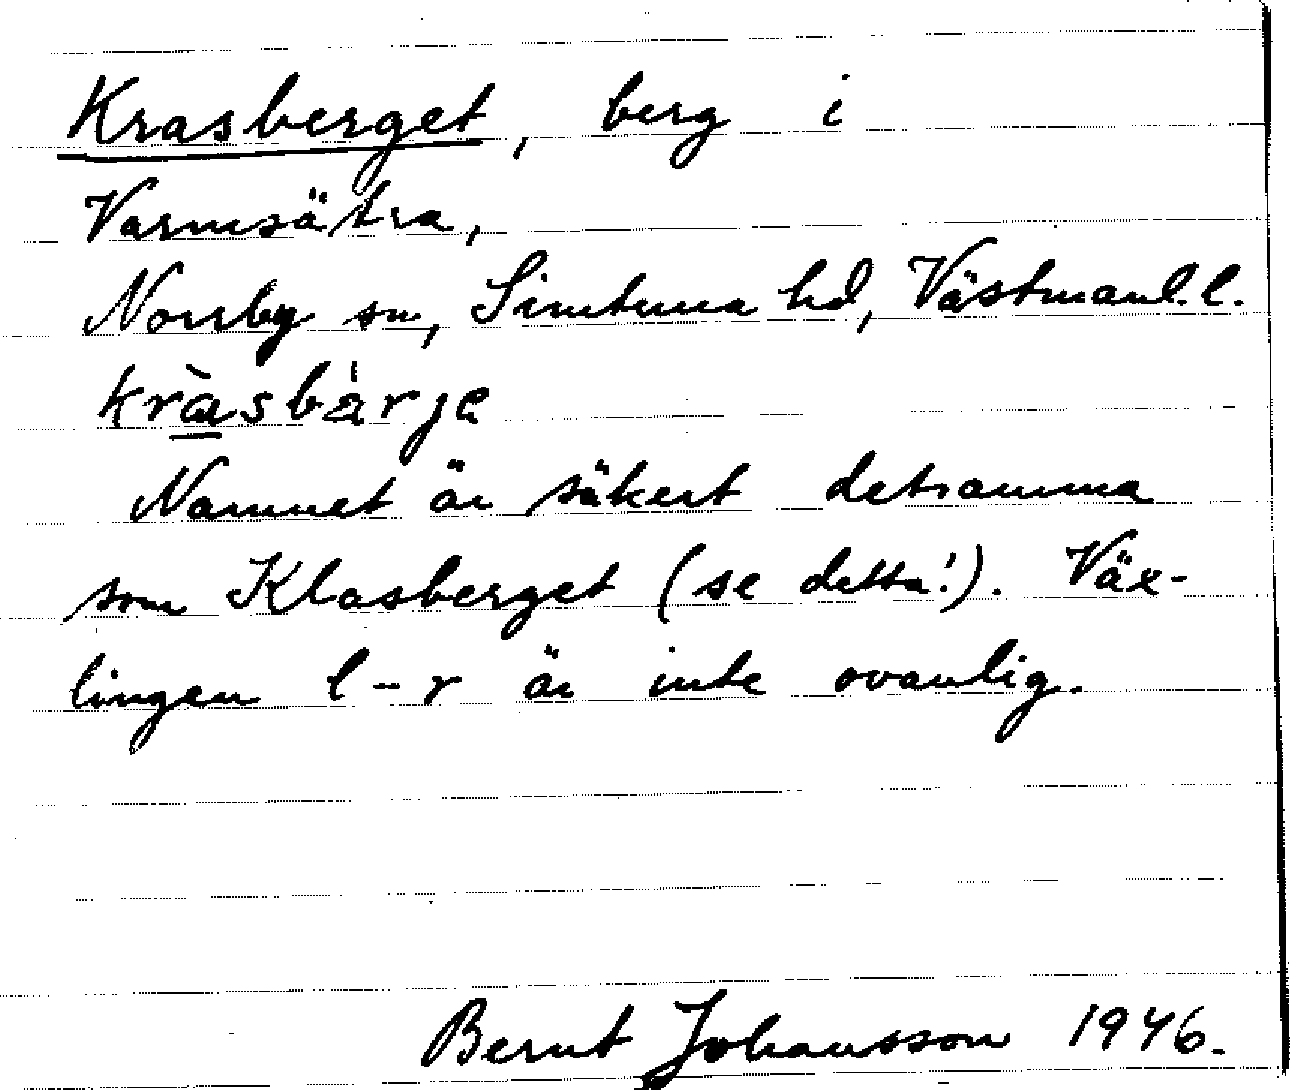 Krasberget, berg i
Varmsätra,
Norrby sn, Simtuna hd, Västmanl. l.
kràsbä́rje
Namnet är säkert detsamma
som Klasberget (se detta!). Väx-
lingen l-r är inte ovanlig.
Bernt Johansson 1946.